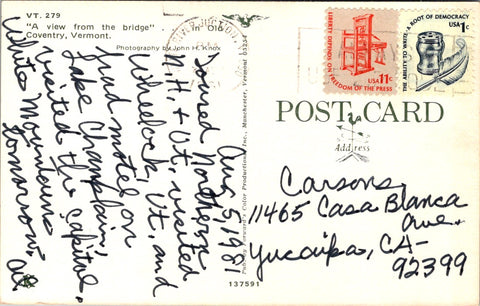 VT. 279
"A view from the bridge" in Old
Coventry, Vermont.
Photography by John H. Knox
LIBERTY DEPENDS ON
FREEDOM OF THE PRESS
USA 11c
THE ABILITY TO WRITE. A ROOT OF DEMOCRACY
USA 1c
POST CARD
Address
Aug 5, 1981
Toured Northern
N.H. & Vt, visited
Wheelock, Vt. and
had motel on
Lake Champlain,
visited the capitol.
White Mountains
tomorrow.
Carsons
11465 Casa Blanca
Ave.
Yucaipa, CA-
92399
Color Productions, Inc., Manchester, Vermont 05254
137591